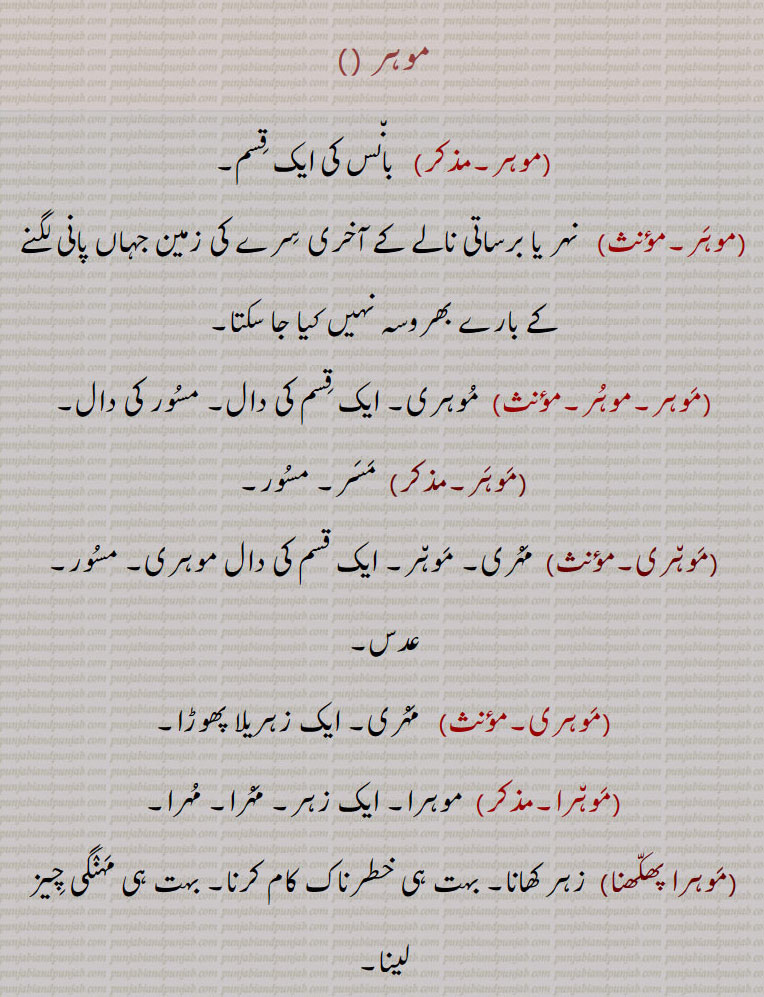 موہر ()
(موہر۔مذکر) بانّس کی ایک قِسم۔
(موہَر۔مؤنث) نہر یا برساتی نالے کے آخری سِرے کی زمین جہاں پانی لگنے
کے بارے بھروسہ نہیں کیا جا سکتا۔
(مَوہر۔موہُر۔مؤنث) مُوہری۔ ایک قِسم کی دال۔ مسُور کی دال۔
(مَوہَر۔مذکر) مَسَر۔ مسُور۔
(مَوہّری۔مؤنث) مہّری۔ مَوہّر۔ ایک قسم کی دال موہری۔ مسُور۔
عدس۔
(مَوہری۔مؤنث) مہّری۔ ایک زہریلا پھوڑا۔
(مَوہّرا۔مذکر) موہرا۔ ایک زہر۔ مہّرا۔ مُہرا۔
(مَوہرا پھکّھنا) زہر کھانا۔ بہت ہی خطرناک کام کرنا۔ بہت ہی مَہنْگی چِیز
لینا۔